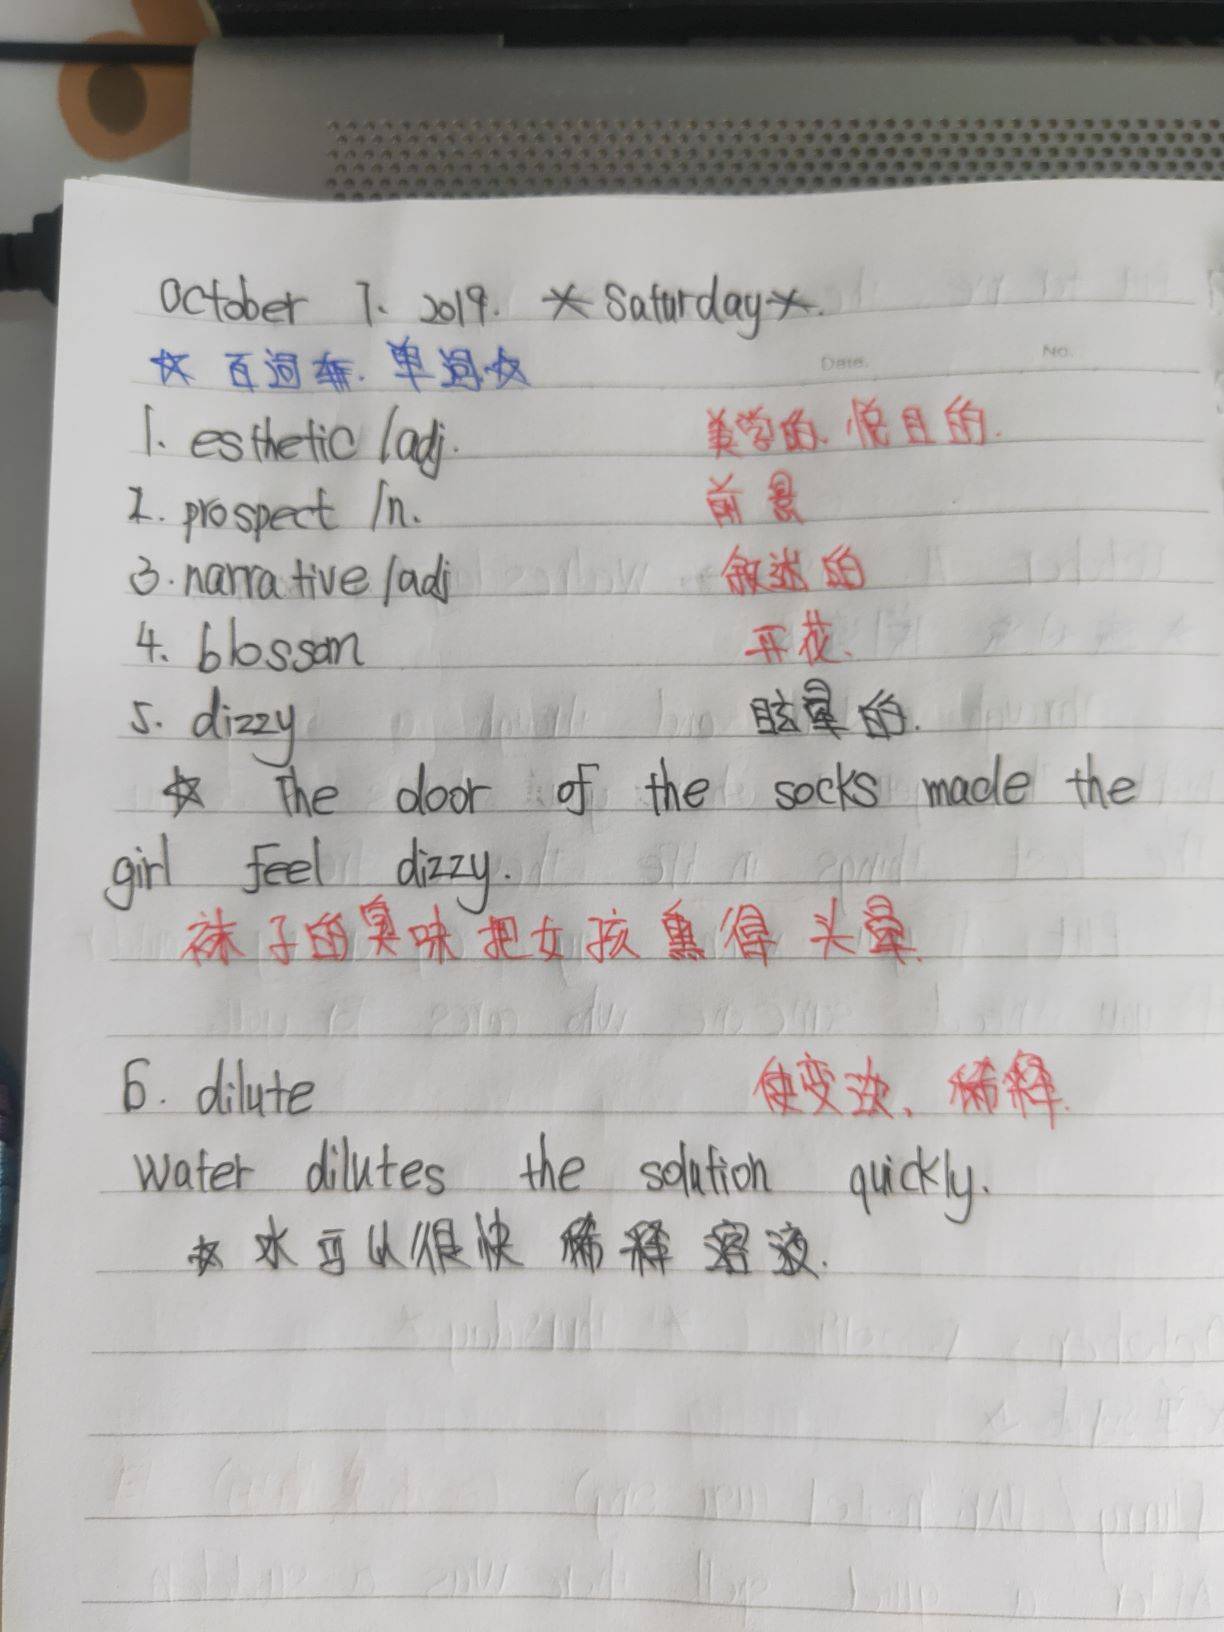 October 7. 2019. * Saturday *.
☆ 百词斩. 单词. ☆
Date. No.
1. esthetic /adj. 美学的、悦目的.
2. prospect /n. 前景
3. narrative /adj 叙述的
4. blossom 开花.
5. dizzy 眩晕的.
☆ The door of the socks made the
girl feel dizzy.
袜子的臭味把女孩熏得头晕.
6. dilute 使变淡、稀释.
Water dilutes the solution quickly.
☆ 水可以很快稀释溶液.